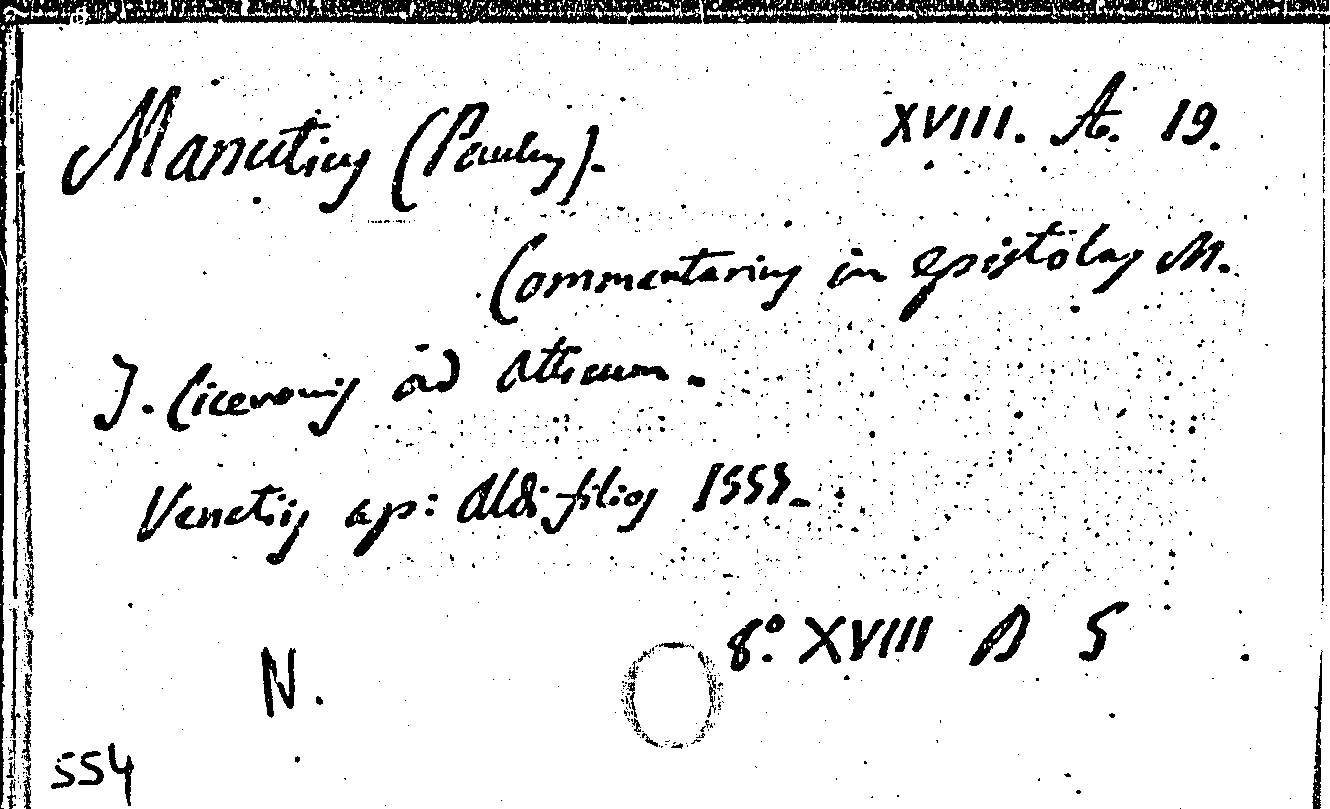 Manutius (Paulus). XVIII. A. 19.
Commentarius in epistolas M.
T. Ciceronis ad Atticum.
Venetiis ap: Aldi filios 1553.
8.º XVIII A 5
N.
554